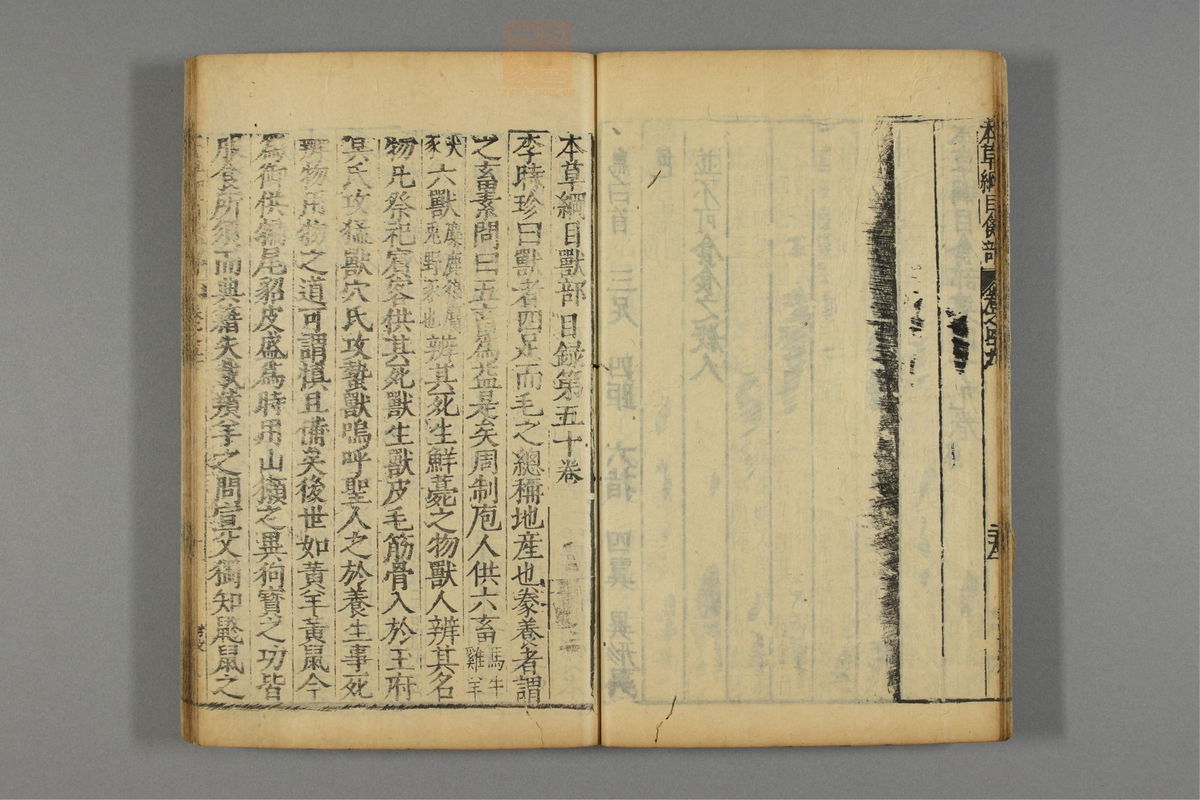 本草綱目禽部
本草綱目獸部目録第五十卷
李時珍曰獸者四足而毛之總稱地産也豢養者謂
之畜素問曰五畜爲益是矣周制庖人供六畜馬牛雞羊
犬豕六獸麋鹿狼麕兎野豕也辨其死生鮮薧之物獸人辨其名
物凡祭祀賓客供其死獸生獸皮毛筋骨入於玉府
冥氏攻猛獸穴氏攻蟄獸嗚呼聖人之於養生事死
辨物用物之道可謂慎且備矣後世如黃羊黃鼠今
爲御供犏尾貂皮盛爲時用山獺之異狗寶之功皆
服食所須而典籍失載羵羊之問宣父獨知鼮鼠之